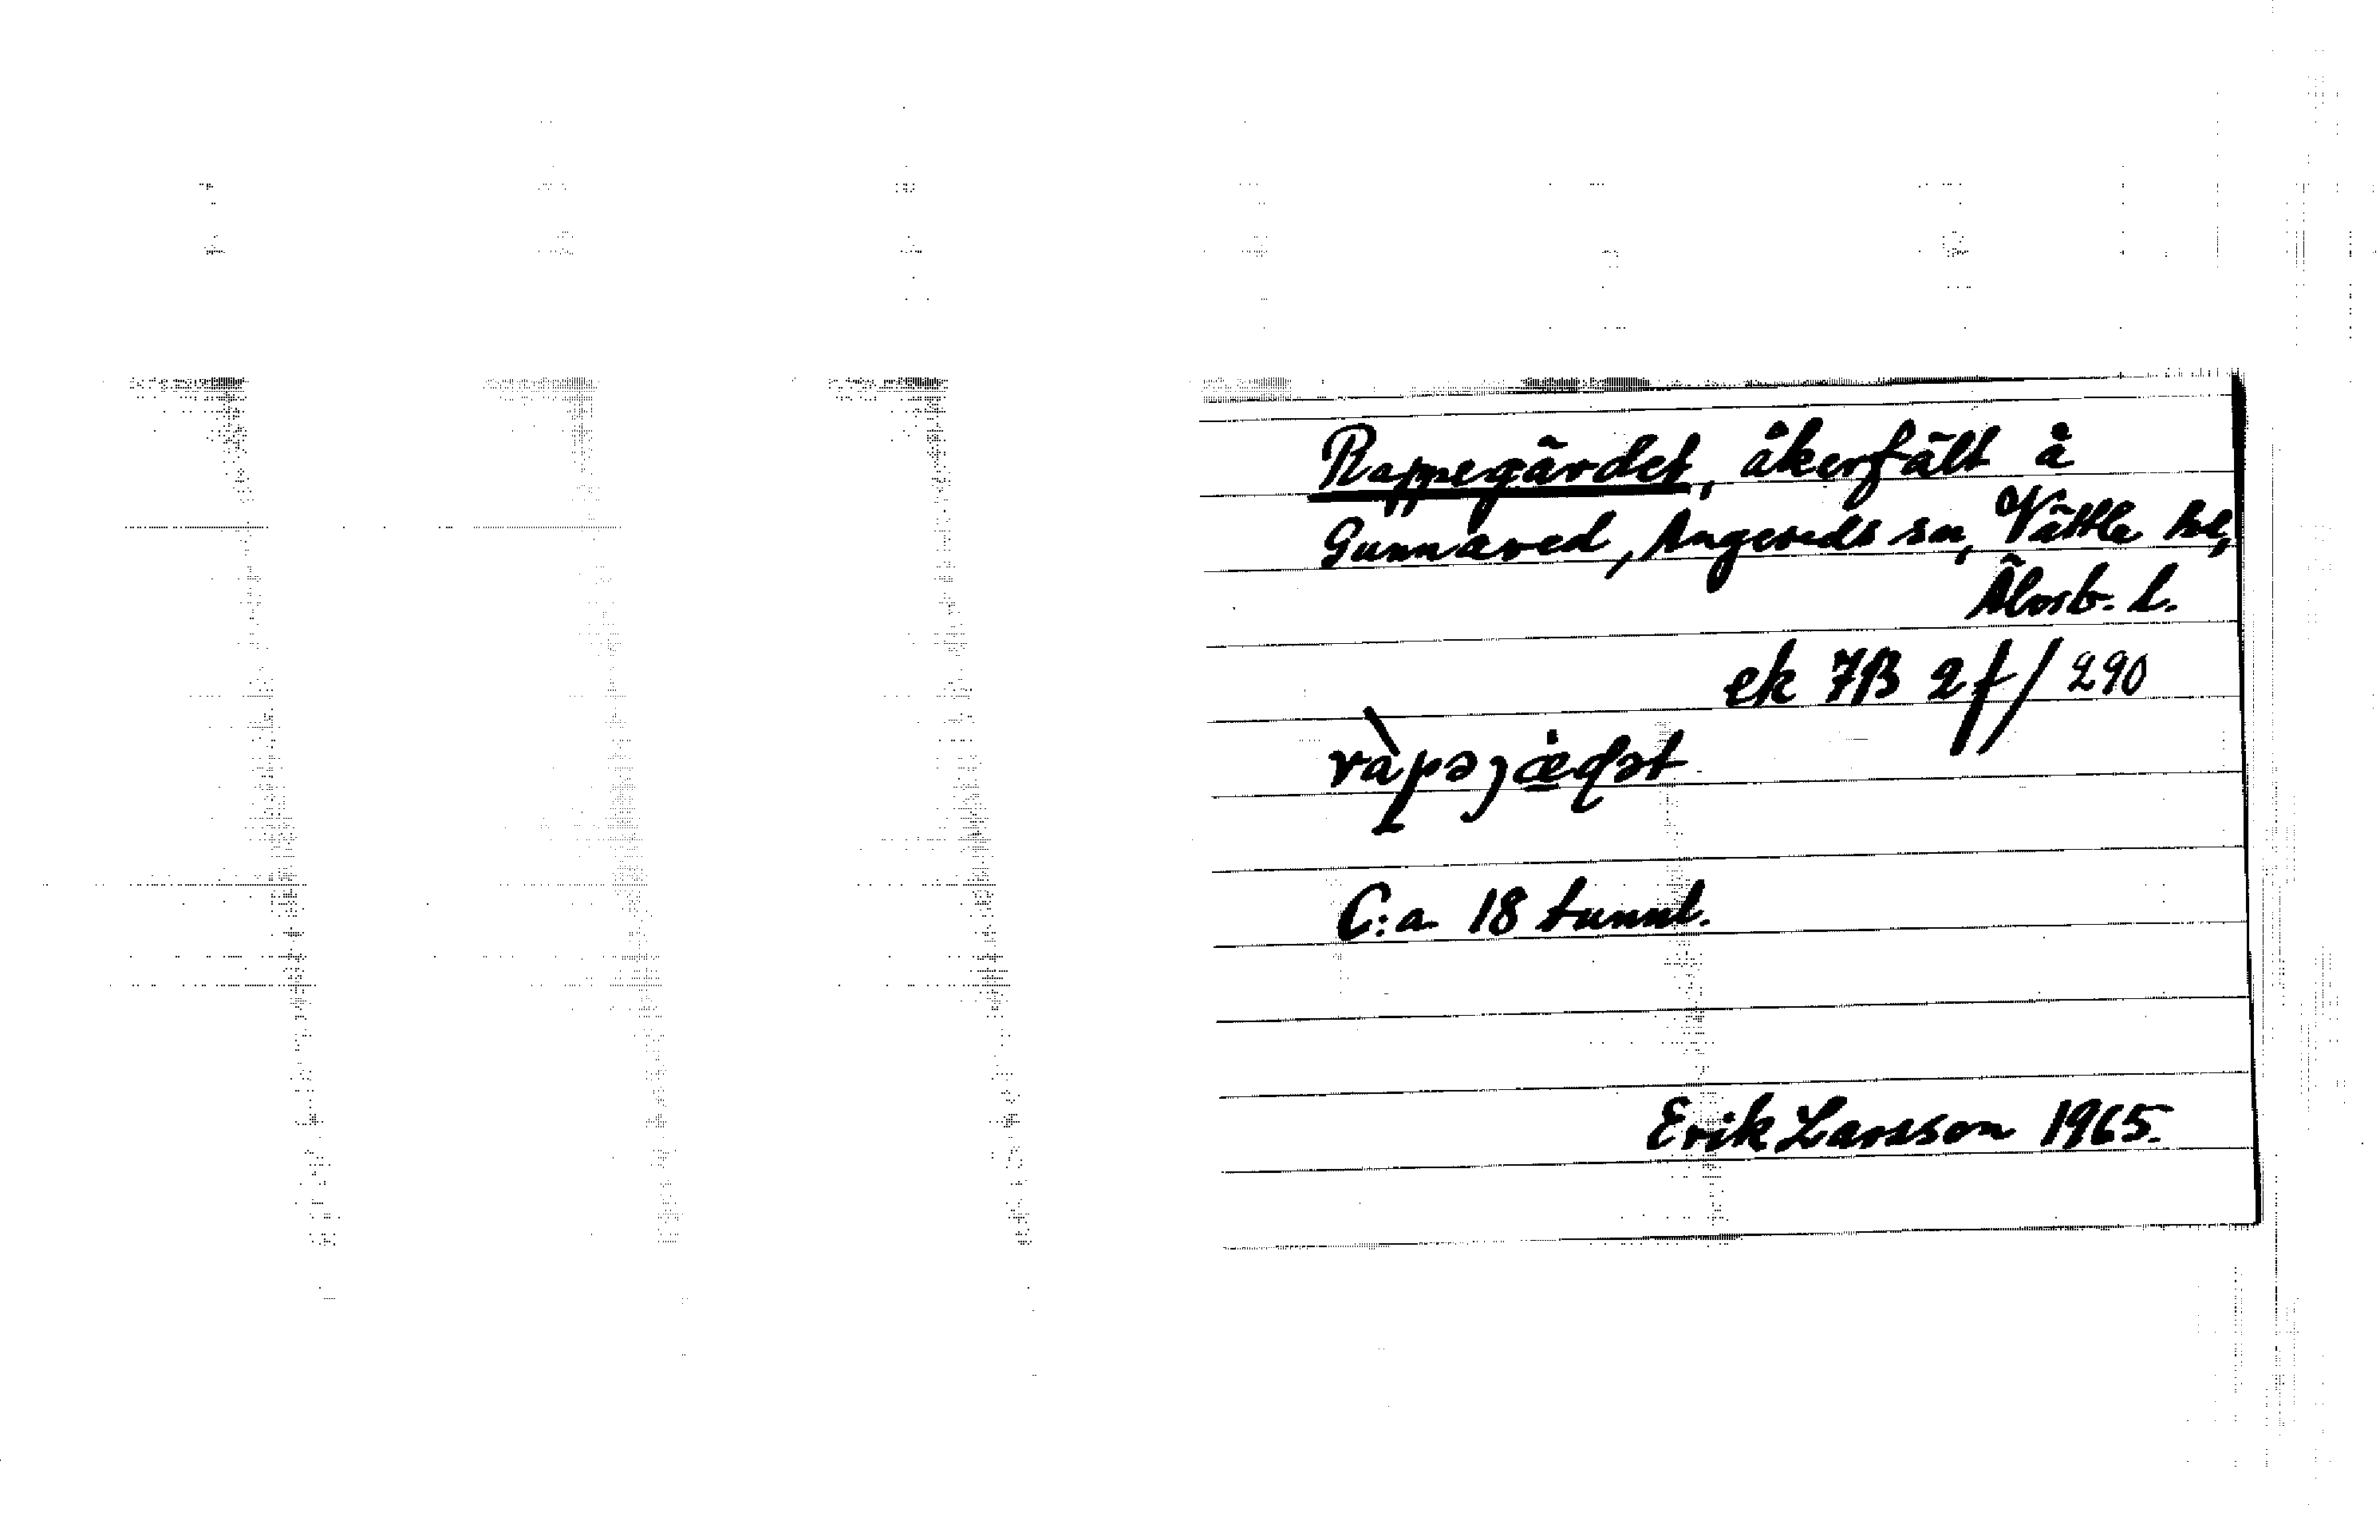 Rappegärdet, åkerfält å
Gunnared, Angereds sn, Vättle hd,
Älvsb. l.
ek 7B 2f/290
C:a 18 tunnl.
Erik Larsson 1965.